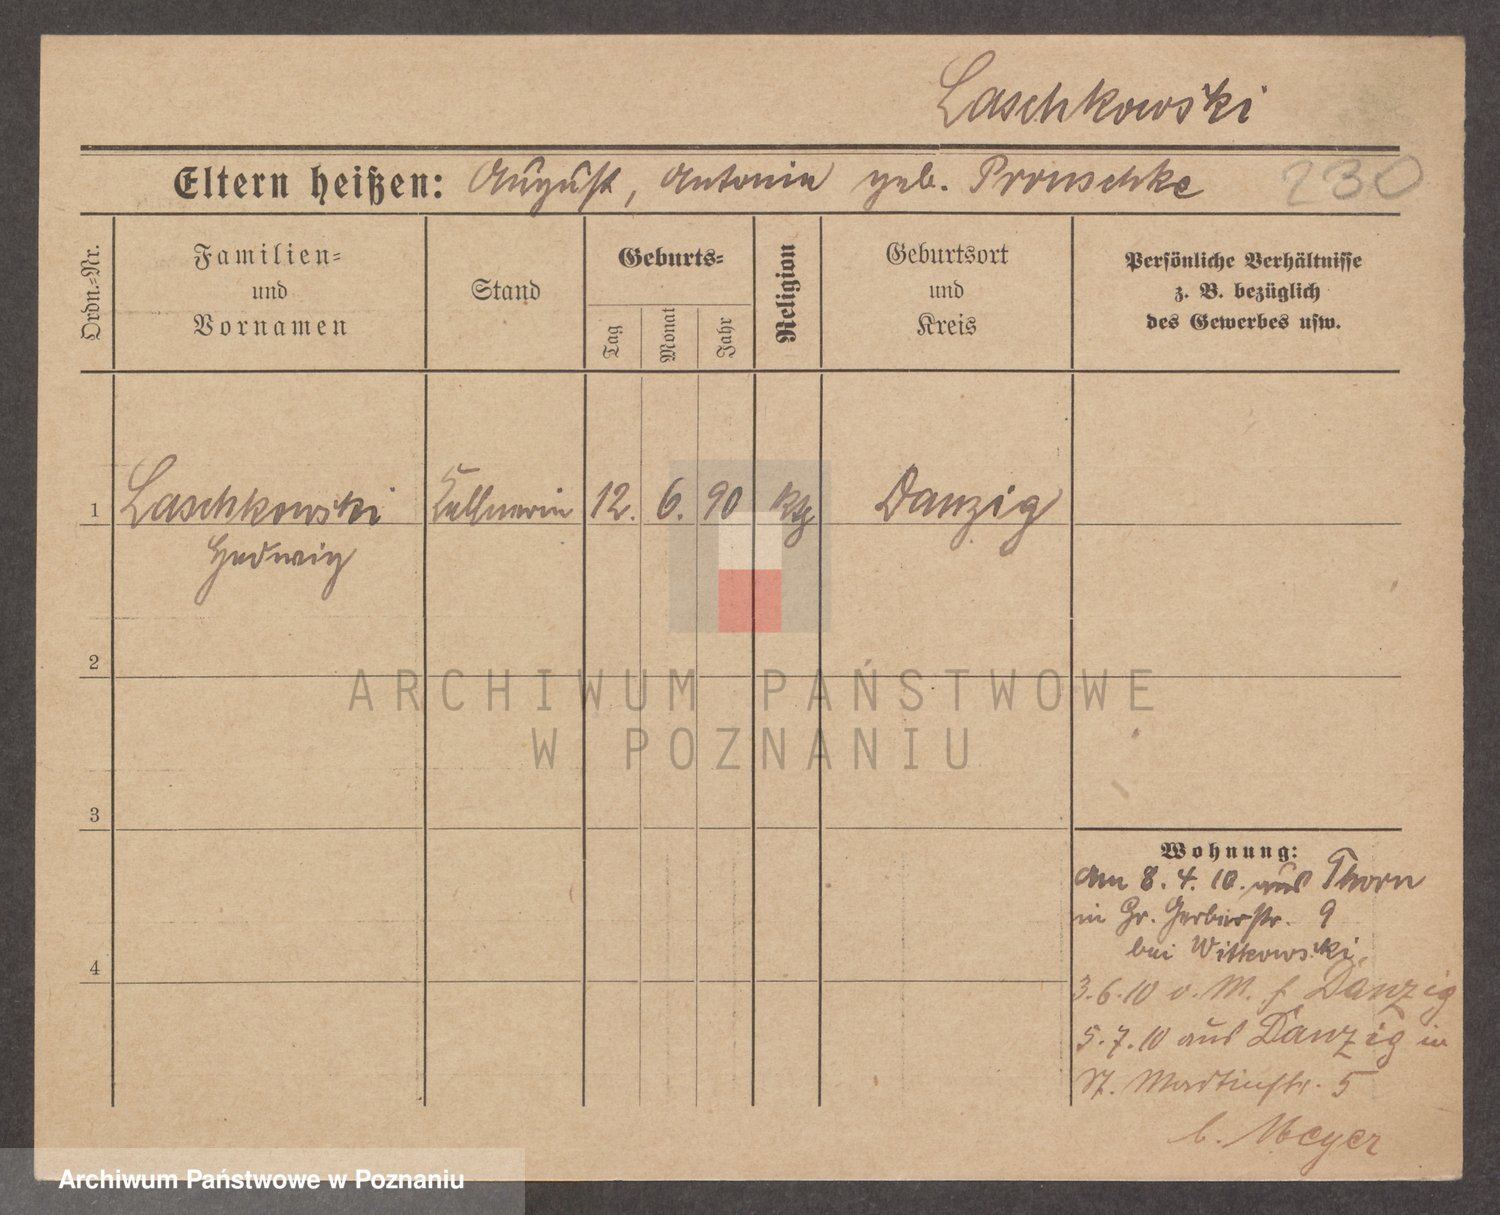 Laschkowski
Eltern heißen: August, Antonie geb. Pronschke
230
Ordn.-Nr.
Familien-
und
Vornamen
Stand
Geburts-
Tag
Monat
Jahr
Religion
Geburtsort
und
Kreis
Persönliche Verhältnisse
z. B. bezüglich
des Gewerbes usw.
1 Laschkowski Kellnerin 12. 6. 90 ktg Danzig
Hedwig
2
3
4
Wohnung:
am 8. 4. 10. aus Thorn
in Gr. Gerberstr. 9
bei Witkowski.
3.6.10 v. M. f Danzig
5.7.10 aus Danzig in
St. Martinstr. 5
b. Meyer
ARCHIWUM PAŃSTWOWE
W POZNANIU
Archiwum Państwowe w Poznaniu